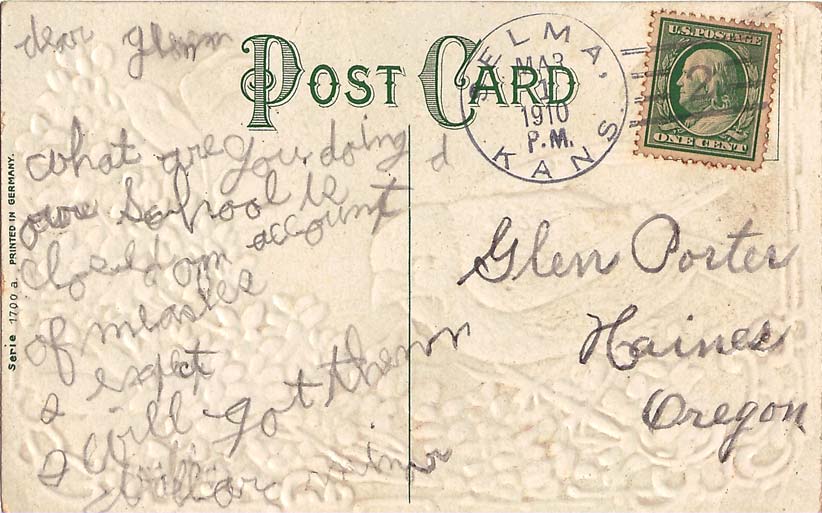 dear glenn
POST CARD
SELMA,
MAR
1910
P.M.
KANS
U.S. POSTAGE
2
ONE CENT
what are you doing
our School is
closed on account
of measles
I expect
I will got them
Glen Porter
Haines
Oregon
Serie 1700 a. PRINTED IN GERMANY.